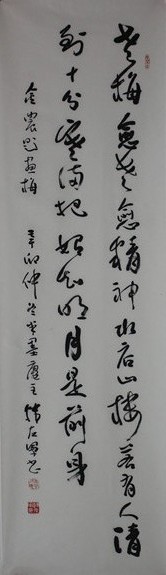 老梅愈老愈精神水店山楼若有人清
到十分寒满把始知明月是前身
金农题画梅 辛卯仲